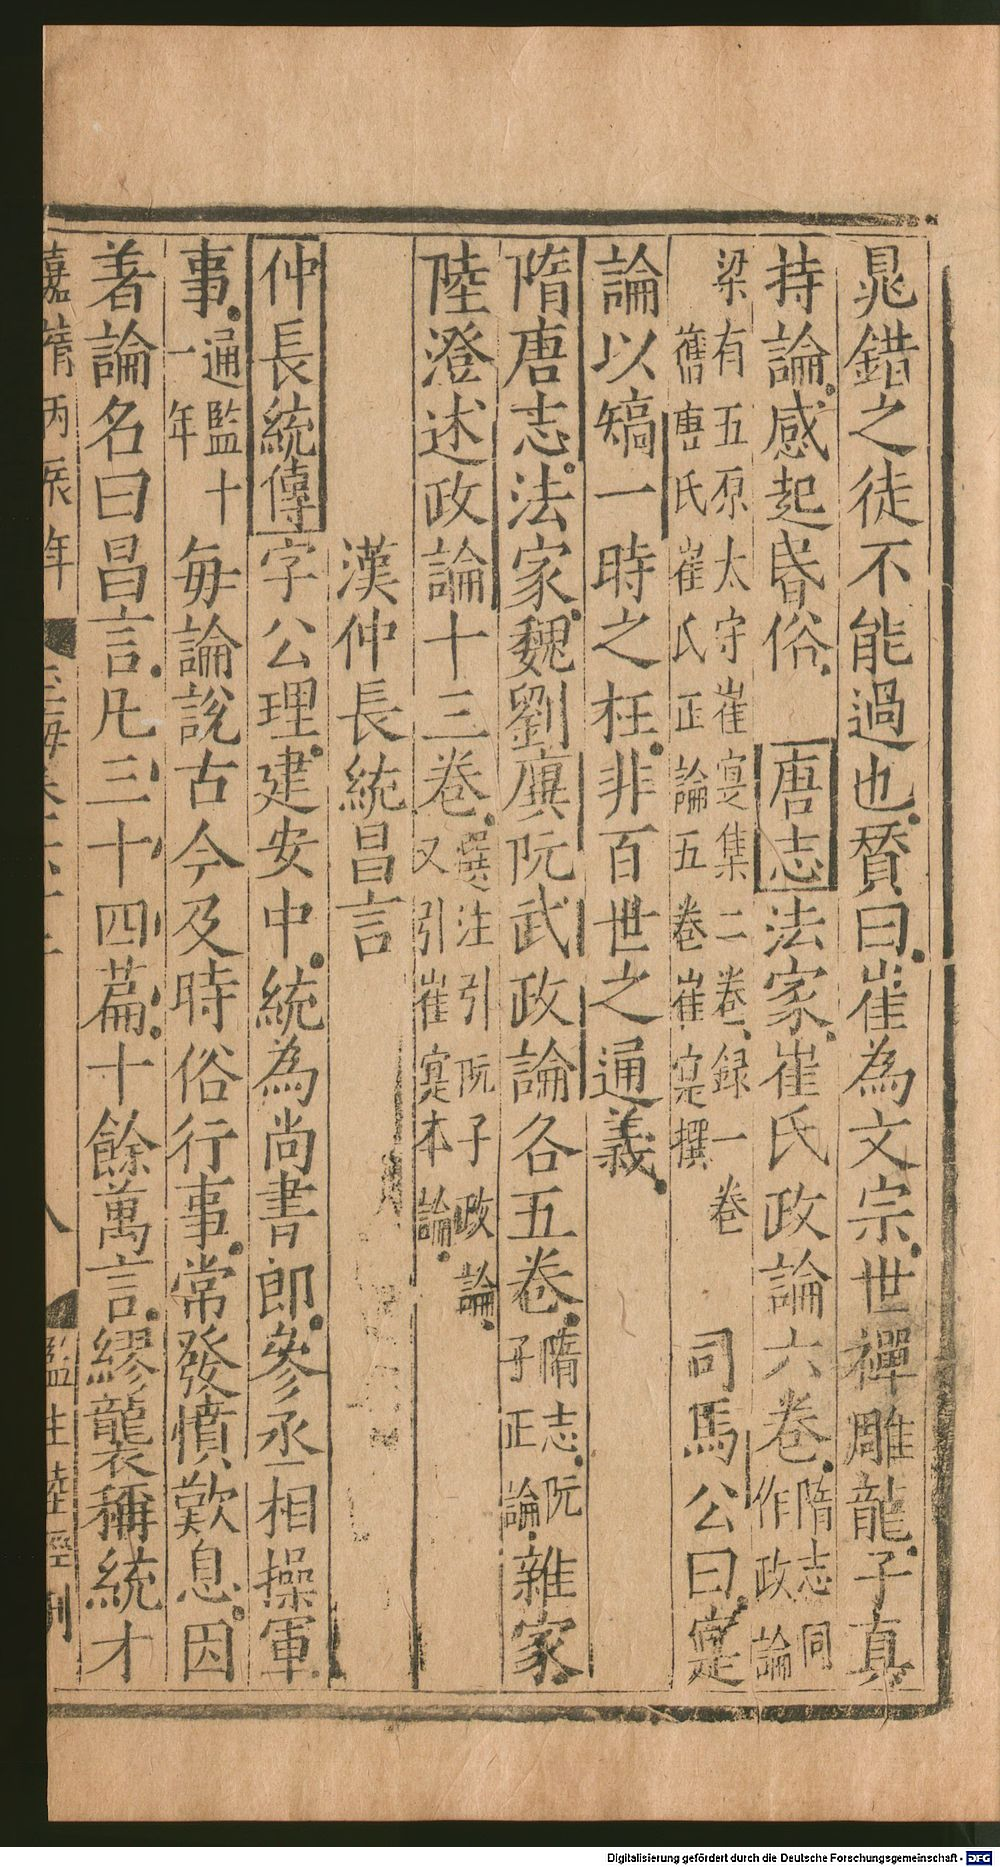 晁錯之徒不能過也贊曰崔為文宗世禪雕龍子真
持論感起昏俗 唐志法家崔氏政論六卷隋志同作政論
梁有五原太守崔寔集二卷録一卷
舊唐氏崔氏正論五卷崔寔撰 司馬公曰寔
論以矯一時之枉非百世之通義
隋唐志法家魏劉廙阮武政論各五卷隋志阮子正論雜家
陸澄述政論十三卷選注引阮子政論又引崔寔本論
漢仲長統昌言
仲長統傳字公理建安中統為尚書郎參丞相操軍
事通監十一年每論說古今及時俗行事常發憤歎息因
著論名曰昌言凡三十四篇十餘萬言繆襲稱統才
嘉靖丙辰年 玉海卷六十二 八 監生陸經刊
Digitalisierung gefördert durch die Deutsche Forschungsgemeinschaft - DFG